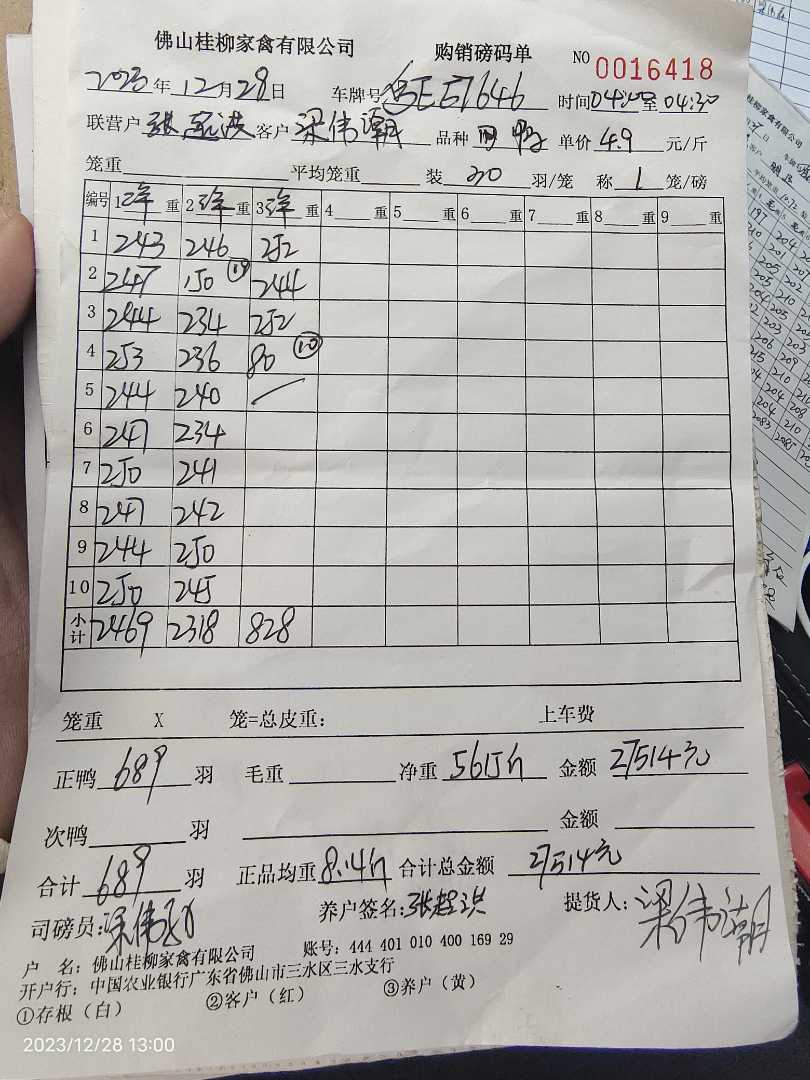 佛山桂柳家禽有限公司 购销磅码单 NO 0016418
2023年12月28日 车牌号 E E7646 时间04:00至04:30
联营户 张 洪 客户 梁伟潮 品种 鸭 单价 4.9 元/斤
笼重 平均笼重 装 30 羽/笼 称 1 笼/磅
编号 1 净 重 2 净 重 3 净 重 4 重 5 重 6 重 7 重 8 重 9 重
1 243 246 252
2 247 150 (19) 244
3 244 234 252
4 253 236 80 (10)
5 244 240
6 247 234
7 250 241
8 247 242
9 244 250
10 250 245
小计 2469 2318 828
笼重 X 笼=总皮重: 上车费
正鸭 689 羽 毛重 净重 5615斤 金额 27514元
次鸭 羽 金额
合计 689 羽 正品均重 8.14斤 合计总金额 27514元
司磅员: 梁伟 养户签名: 张 洪 提货人: 梁伟潮
户 名: 佛山桂柳家禽有限公司 账号: 444 401 010 400 169 29
开户行: 中国农业银行广东省佛山市三水区三水支行
①存根(白) ②客户(红) ③养户(黄)
2023/12/28 13:00